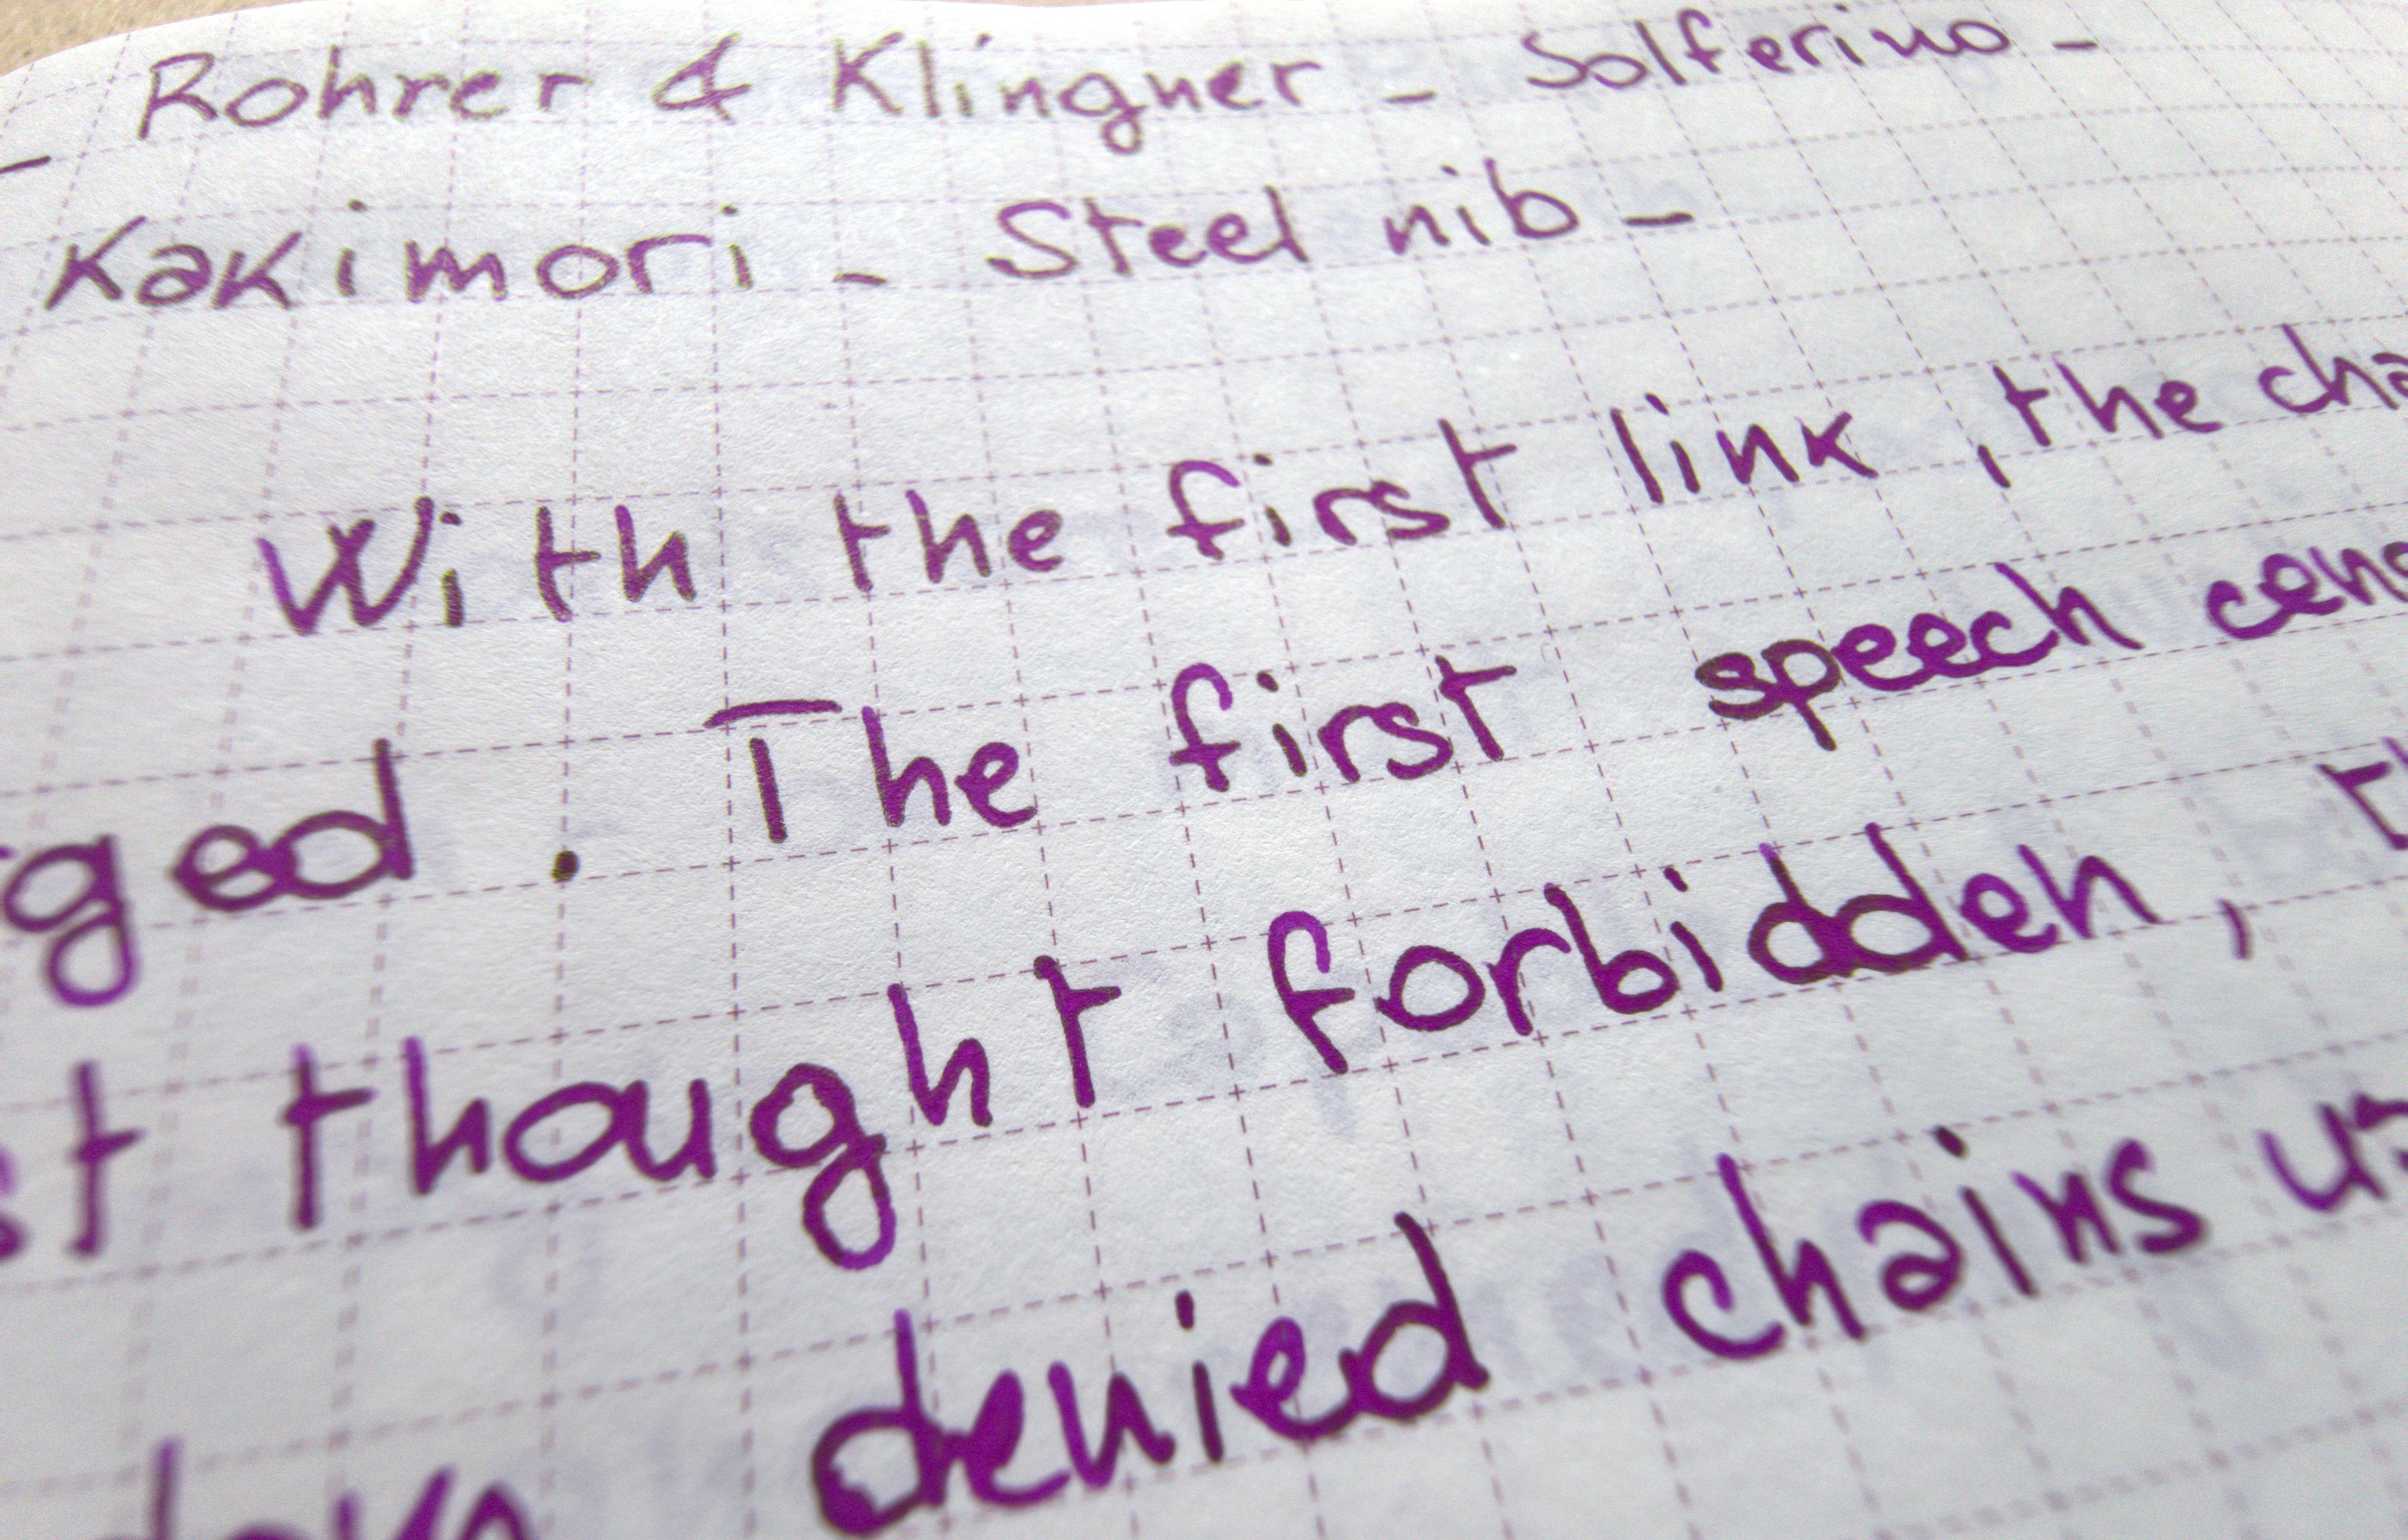 - Rohrer & Klingner - Solferino -
Kakimori - Steel nib -
With the first link, the cha
ged. The first speech cens
st thought forbidden, th
denied chains u